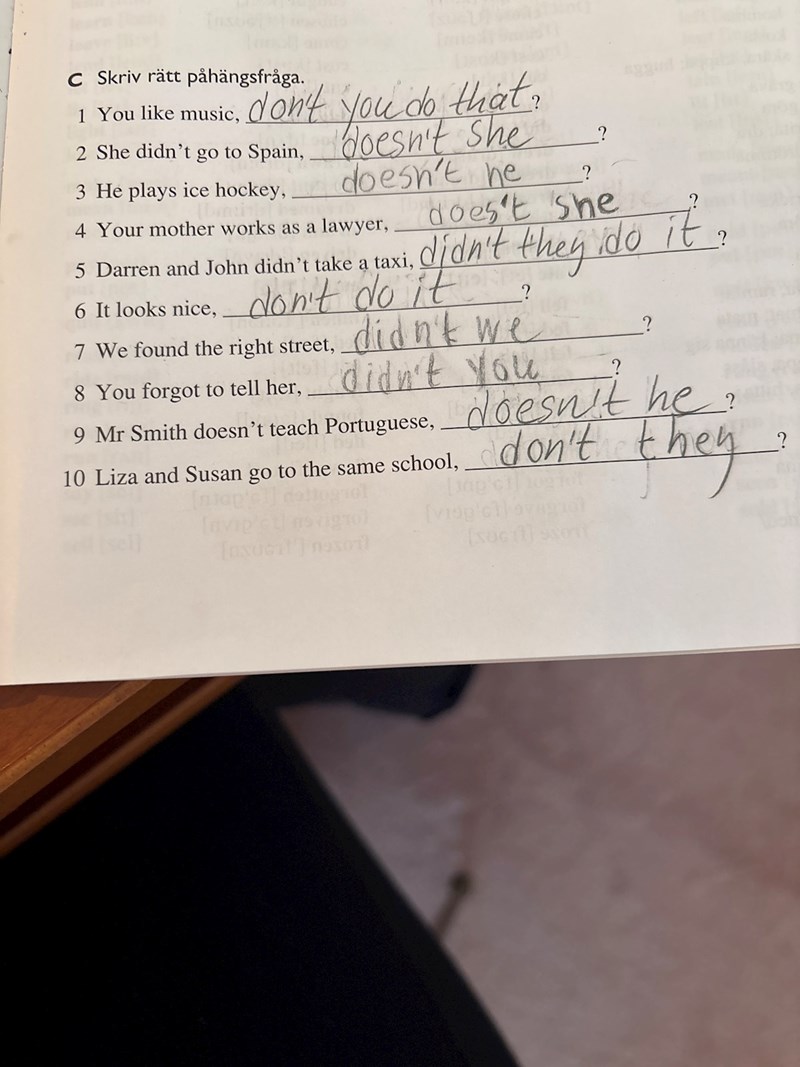 C Skriv rätt påhängsfråga.
1 You like music, don't you do that?
2 She didn't go to Spain, doesn't she?
3 He plays ice hockey, doesn't he?
4 Your mother works as a lawyer, does't she?
5 Darren and John didn't take a taxi, didn't they do it?
6 It looks nice, don't do it?
7 We found the right street, didn't we?
8 You forgot to tell her, didn't you?
9 Mr Smith doesn't teach Portuguese, doesn't he?
10 Liza and Susan go to the same school, don't they?